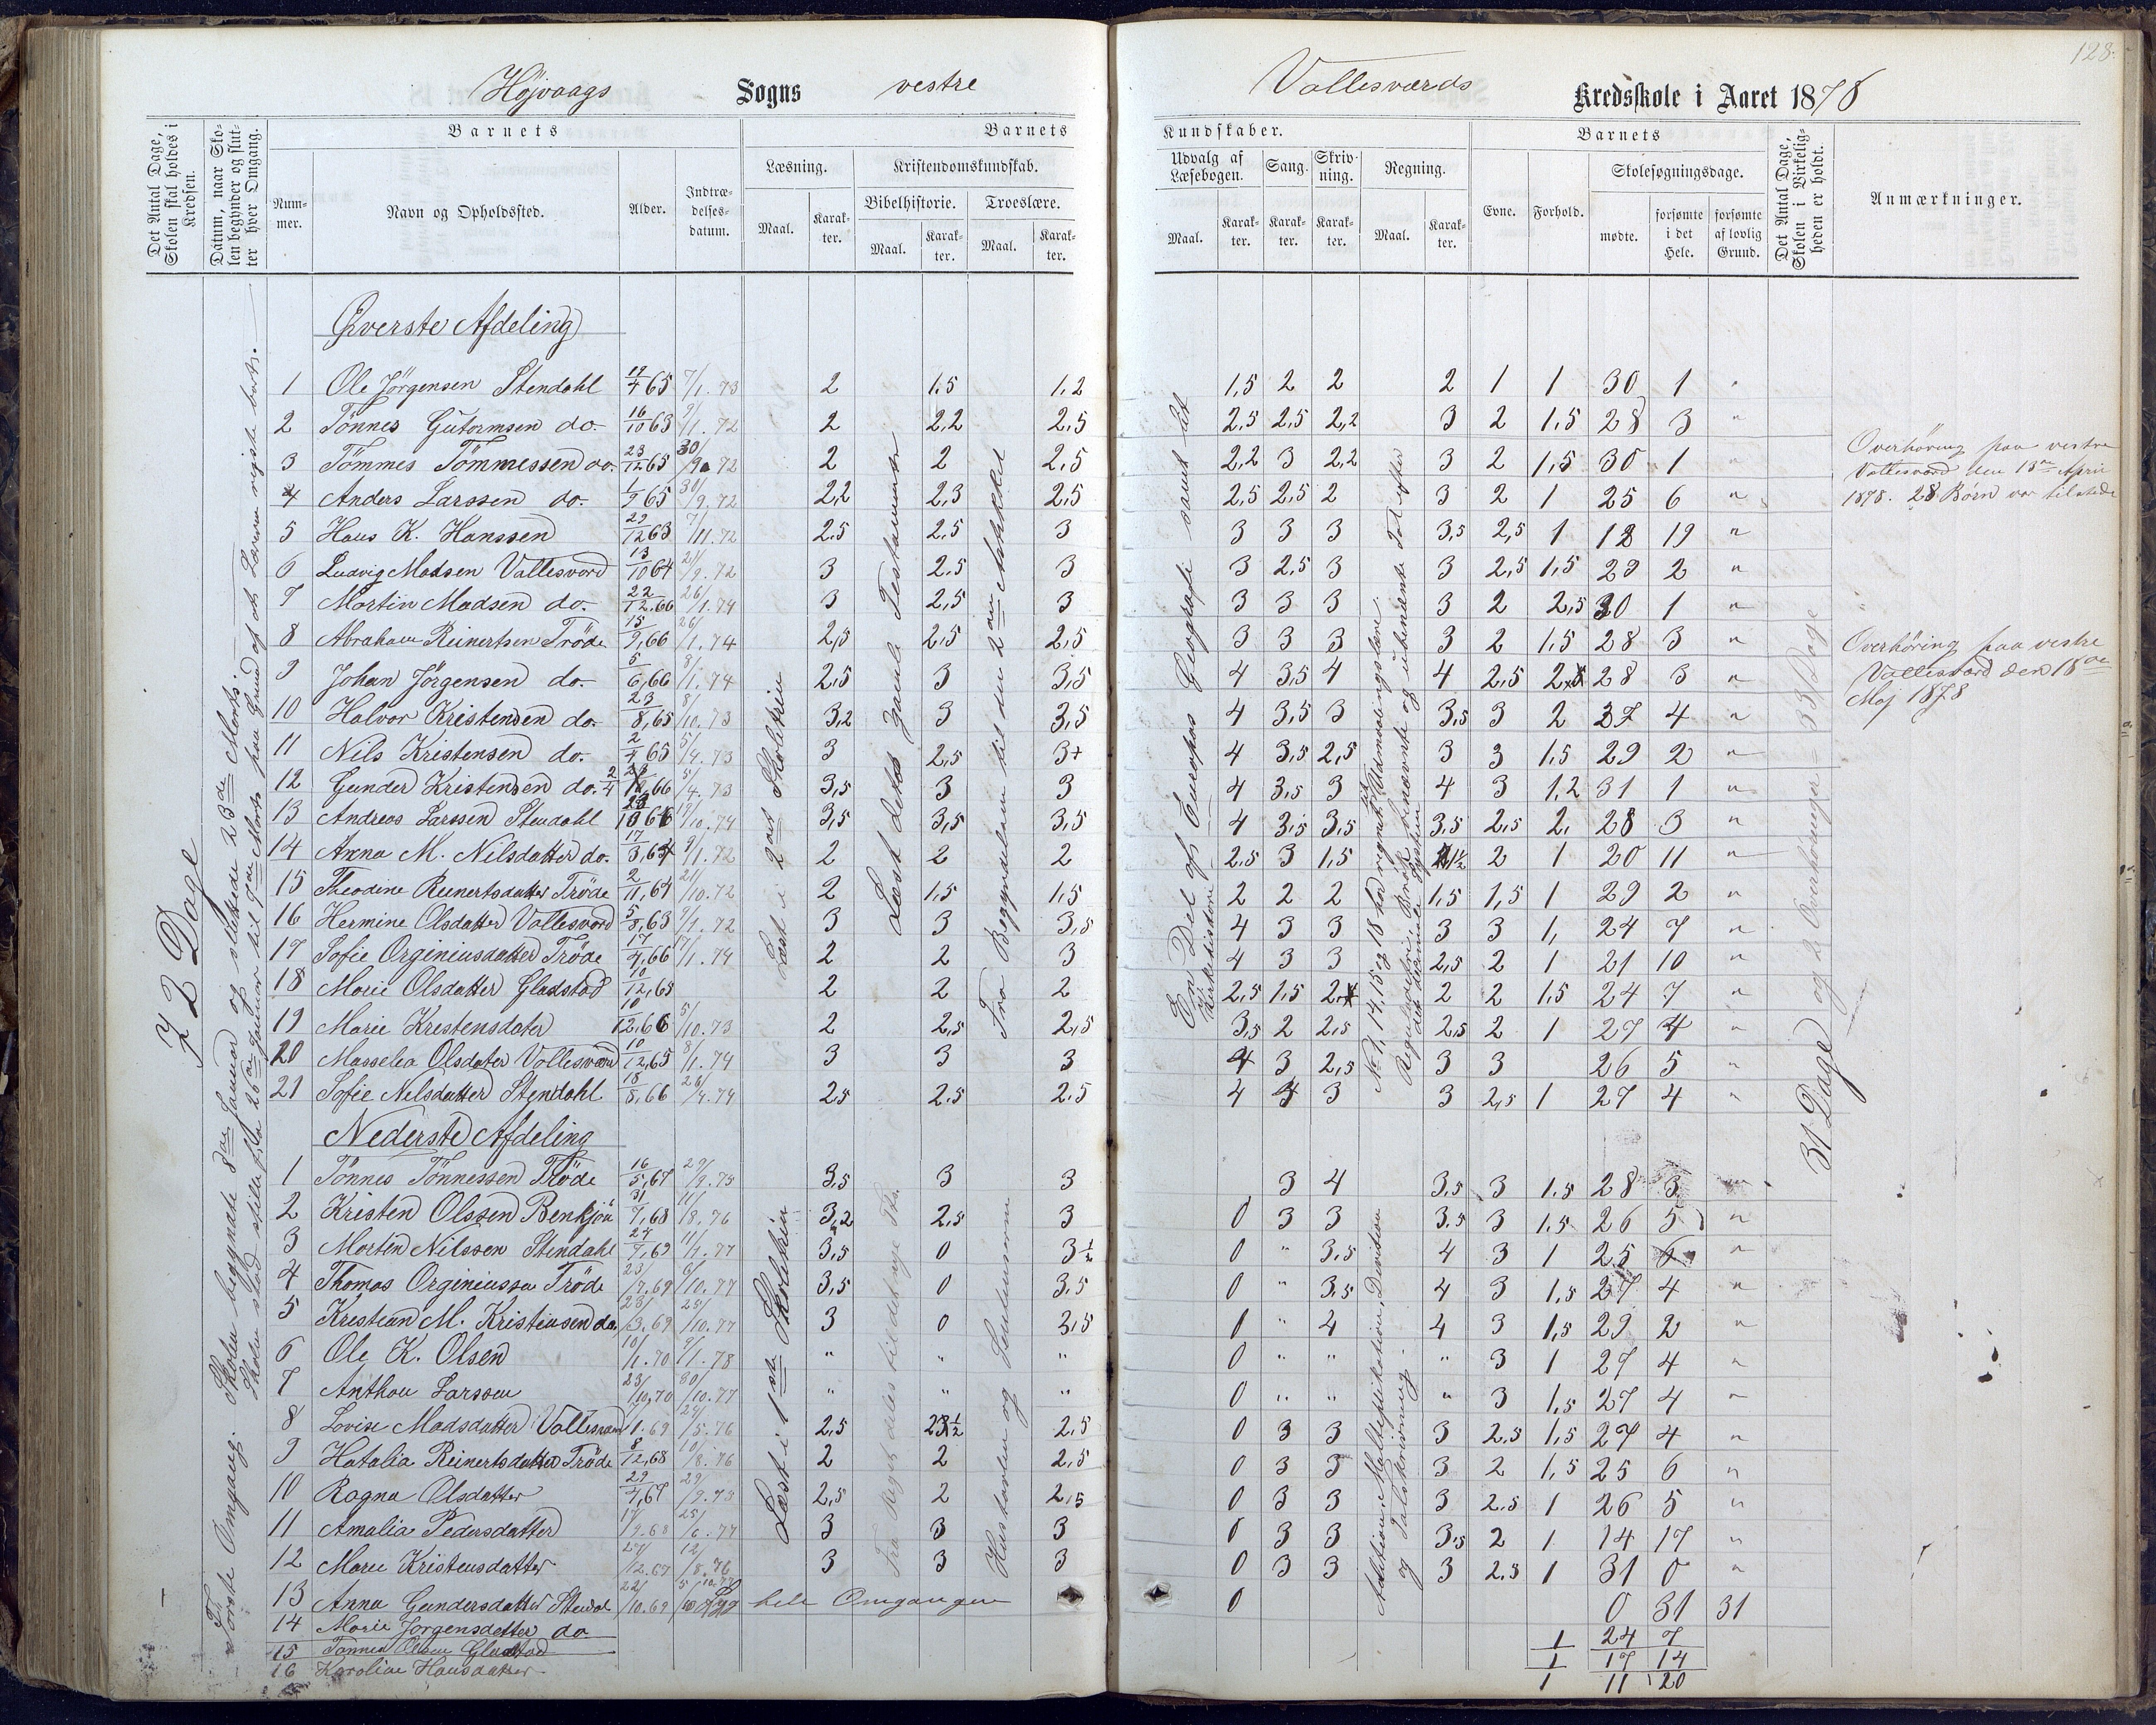 128.
Højvaags Sogns vestre Vallesværds Kredsskole i Aaret 1878
Det Antal Dage, Skolen skal holdes i Kredsen.
Datum, naar Skolen begynder og slutter hver Omgang.
Barnets
Nummer.
Navn og Opholdssted.
Alder.
Indtrædelses-datum.
Barnets
Læsning.
Maal.
Karakter.
Kristendomskundskab.
Bibelhistorie.
Maal.
Karakter.
Troeslære.
Maal.
Karakter.
Kundskaber.
Udvalg af Læsebogen.
Maal.
Karakter.
Sang.
Karakter.
Skrivning.
Karakter.
Regning.
Maal.
Karakter.
Barnets
Evne.
Forhold.
Skolesøgningsdage.
mødte.
forsømte i det Hele.
forsømte af lovlig Grund.
Det Antal Dage, Skolen i Virkeligheden er holdt.
Anmærkninger.
Øverste Afdeling
1 Ole Jörgensen Stendahl 19/4 65 7/1. 73 2 1.5 1,2 1,5 2 2 2 1 1 30 1
2 Tönnes Gutormsen do. 16/10 63 9/1. 72 2 2,2 2,5 2,5 2,5 2,2 3 2 1,5 28 3 "
3 Tömmes Tömmessen do. 23/12 65 30/9 72 2 2 2,5 2,2 3 2,2 3 2 1,5 30 1 "
4 Anders Larssen do. 1/9 65 30/9. 72 2,2 2,3 2,5 2,5 2,5 2 3 2 1 25 6 "
5 Hans K. Hanssen 29/12 63 7/11. 72 2.5 2,5 3 3 3 3 3,5 2,5 1 12 19 "
6 Ludvig Madsen Vallesverd 13/10 64 21/9. 72 3 2.5 3 3 2,5 3 3 2,5 1,5 29 2 "
7 Martin Madsen do. 22/12.66 26/1. 74 3 2,5 3 3 3 3 3 2 2,5 30 1 "
8 Abraham Reinertsen Tröde 15/9,66 26/1. 74 2,5 2,5 2,5 3 3 3 3 2 1,5 28 3 "
9 Johan Jörgensen do. 5/6,66 8/1. 74 2,5 3 3,5 4 3,5 4 4 2,5 2 28 3 "
10 Halvor Kristensen do. 23/8,65 8/10. 73 3,2 3 3,5 4 3,5 3 3,5 3 2 27 4 "
11 Nils Kristensen do. 2/4 65 5/4. 73 3 2,5 3+ 4 3,5 2,5 3 3 1.5 29 2 "
12 Gunder Kristensen do. 2/4 66 5/4. 73 3,5 3 3 4 3.5 3 4 3 1,2 31 1 "
13 Andreas Larssen Stendahl 23/10 66 19/10. 74 3,5 3,5 3,5 4 3,5 3,5 3,5 2,5 2, 28 3 "
14 Anna M. Nilsdatter do. 17/3,64 9/1. 72 2 2 2 2.5 3 1,5 1½ 2 1 20 11 "
15 Theodine Reinertsdatter Tröde 2/11,64 21/10. 72 2 1,5 1,5 2 2 2 1,5 1,5 1 29 2 "
16 Hermine Olsdatter Vallesverd 5/8,63 9/1. 72 3 3 3,5 4 3 3 3 3 1, 24 7 "
17 Sofie Orginiusdatter Tröde 17/4,66 17/1. 74 2 2 3 4 3 3 2,5 2 1 21 10 "
18 Marie Olsdatter Gladstad 10/12,65 2 2 2 2,5 1,5 2, 2 2 1,5 24 7 "
19 Marie Kristensdater 10/12,66 5/10. 73 2 2,5 2,5 3,5 2 2,5 2,5 2 1 27 4 "
20 Masselea Olsdater Vallesverd 10/12,65 8/1. 74 3 3 3 4 3 2,5 3 3 26 5 "
21 Sofie Nilsdatter Stendahl. 18/8,66 26/4. 74 2,5 2.5 2.5 4 3 3 3 2,5 1 27 4 "
Nederste Afdeling
1 Tönnes Tönnessen Tröde 16/5,67 29/9. 75 3,5 3 3 3 4 3.5 3 1.5 28 3 "
2 Kristen Olssen Benkjön 31/7,68 11/8. 76 3,2 2,5 3 0 3 3 3.5 3 1.5 26 5 "
3 Morten Nilssen Stendahl 24/7,69 11/4. 77 3,5 0 3½ 0 " 3.5 4 3 1 25 6 "
4 Thomas Orginiussen Tröde 23/7,69 6/10. 77 3,5 0 3,5 0 " 3.5 4 3 1,5 27 4 "
5 Kristian M. Kristensen do. 23/3,69 25/10. 77 3 0 3,5 0 " 4 4 3 1,5 29 2 "
6 Ole K. Olsen 10/1. 70 9/1. 78 " " " 0 " " " 3 1 27 4 "
7 Anthon Larssen 23/10,70 30/10. 77 " " " 0 " " " 3 1,5 27 4 "
8 Lovise Madsdatter Vallesverd 7/1. 69 24/5. 76 2,5 2½ 2,5 0 3 3 3 2.5 1,5 27 4 "
9 Hatalia Reinertsdatter Tröde 8/12,68 10/8. 76 2 2 2,5 0 3 3 3 2 1,5 25 6 "
10 Ragna Olsdatter 29/7,67 29/9. 75 2,5 2 2,5 0 3 3 3 2.5 1 26 5 "
11 Amalia Pedersdatter 17/9.68 25/6. 77 3 3 3 0 3 3 3.5 2 1 14 17 "
12 Marie Kristensdatter 27/12.67 12/8. 76 3 3 3 0 3 3 3 2.5 1 31 0 "
13 Anna Gundersdatter Stendal 22/10.69 hele Omgangen 0 0 31 31
14 Marie Jorgensdatter do. 1 24 7
15 Tonnes Olsen Gladstad 1 17 14
16 Karoline Hansdatter 1 11 20
72 Dage
Første Omgang. Skolen begyndte 8de Januar og sluttede 23de Marts.
Skolen stod stille fra 26de Januar til 9de Marts paa Grund af at Læreren reiste bort.
Læst i 2det Skoletrin
Læst dets gamle Testamente
Fra Begyndelsen til den 2den Artikkel
En Del af Europas Geografi samt lidt af Kirkehistorie
No 1, 14, 15 og 18 har regnet lidt Udmaalingslære.
Regula detri, Brøk benævnte og ubenævnte Tal efter det decimale System
Læst i 1ste Skoletrin
Fra Riget deles til det nye Tes.
Hustavlen og Sentenserne
Addition, Multiplikation, Division og Talskrivning.
31 Dage og 2 Overhøringer = 33 Dage
Overhøring paa vestre
Vallesværd den 13de April
1878. 28 Børn var tilstede
Overhöring paa vestre
Vallesværd den 18de
Maj 1878